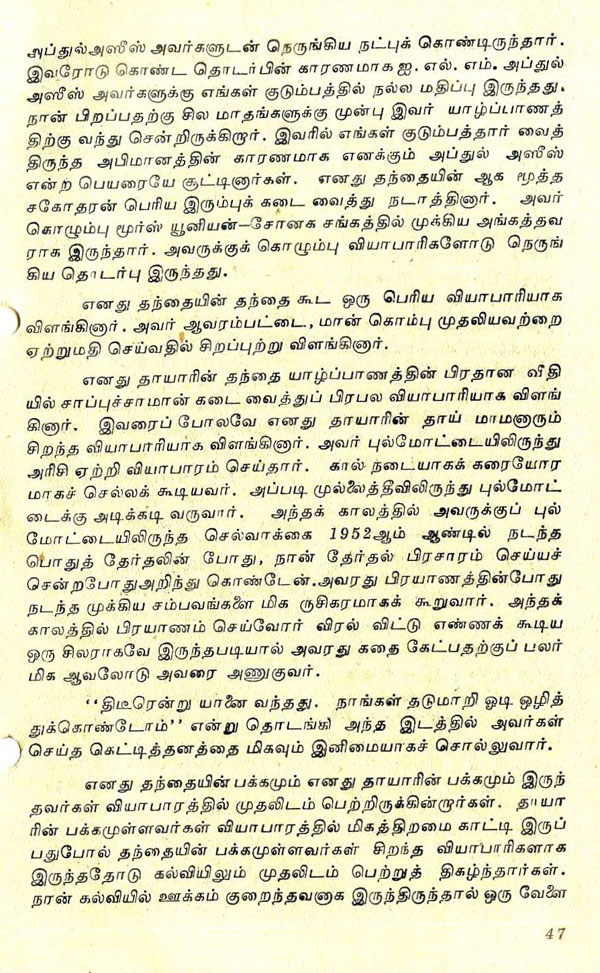 அப்துல்அஸீஸ் அவர்களுடன் நெருங்கிய நட்புக் கொண்டிருந்தார்.
இவரோடு கொண்ட தொடர்பின் காரணமாக ஐ. எல். எம். அப்துல்
அஸீஸ் அவர்களுக்கு எங்கள் குடும்பத்தில் நல்ல மதிப்பு இருந்தது.
நான் பிறப்பதற்கு சில மாதங்களுக்கு முன்பு இவர் யாழ்ப்பாணத்
திற்கு வந்து சென்றிருக்கிறார். இவரில் எங்கள் குடும்பத்தார் வைத்
திருந்த அபிமானத்தின் காரணமாக எனக்கும் அப்துல் அஸீஸ்
என்ற் பெயரையே சூட்டினார்கள். எனது தந்தையின் ஆக மூத்த
சகோதரன் பெரிய இரும்புக் கடை வைத்து நடாத்தினார். அவர்
கொழும்பு மூர்ஸ் யூனியன்—சோனக சங்கத்தில் முக்கிய அங்கத்தவ
ராக இருந்தார். அவருக்குக் கொழும்பு வியாபாரிகளோடு நெருங்
கிய தொடர்பு இருந்தது.
எனது தந்தையின் தந்தை கூட ஒரு பெரிய வியாபாரியாக
விளங்கினார். அவர் ஆவரம்பட்டை, மான் கொம்பு முதலியவற்றை
ஏற்றுமதி செய்வதில் சிறப்புற்று விளங்கினார்.
எனது தாயாரின் தந்தை யாழ்ப்பாணத்தின் பிரதான வீதி
யில் சாப்புச்சாமான் கடை வைத்துப் பிரபல வியாபாரியாக விளங்
கினார். இவரைப் போலவே எனது தாயாரின் தாய் மாமனாரும்
சிறந்த வியாபாரியாக விளங்கினார். அவர் புல்மோட்டையிலிருந்து
அரிசி ஏற்றி வியாபாரம் செய்தார். கால் நடையாகக் கரையோர
மாகச் செல்லக் கூடியவர். அப்படி முல்லைத்தீவிலிருந்து புல்மோட்
டைக்கு அடிக்கடி வருவார். அந்தக் காலத்தில் அவருக்குப் புல்
மோட்டையிலிருந்த செல்வாக்கை 1952ஆம் ஆண்டில் நடந்த
பொதுத் தேர்தலின் போது, நான் தேர்தல் பிரசாரம் செய்யச்
சென்றபோதுஅறிந்து கொண்டேன்.அவரது பிரயாணத்தின்போது
நடந்த முக்கிய சம்பவங்களை மிக ருசிகரமாகக் கூறுவார். அந்தக்
காலத்தில் பிரயாணம் செய்வோர் விரல் விட்டு எண்ணக் கூடிய
ஒரு சிலராகவே இருந்தபடியால் அவரது கதை கேட்பதற்குப் பலர்
மிக ஆவலோடு அவரை அணுகுவர்.
‘‘திடீரென்று யானை வந்தது. நாங்கள் தடுமாறி ஓடி ஒழித்
துக்கொண்டோம்’’ என்று தொடங்கி அந்த இடத்தில் அவர்கள்
செய்த கெட்டித்தனத்தை மிகவும் இனிமையாகச் சொல்லுவார்.
எனது தந்தையின் பக்கமும் எனது தாயாரின் பக்கமும் இருந்
தவர்கள் வியாபாரத்தில் முதலிடம் பெற்றிருக்கின்றார்கள். தாயா
ரின் பக்கமுள்ளவர்கள் வியாபாரத்தில் மிகத்திறமை காட்டி இருப்
பதுபோல் தந்தையின் பக்கமுள்ளவர்கள் சிறந்த வியாபாரிகளாக
இருந்ததோடு கல்வியிலும் முதலிடம் பெற்றுத் திகழ்ந்தார்கள்.
நான் கல்வியில் ஊக்கம் குறைந்தவனாக இருந்திருந்தால் ஒரு வேளை
47